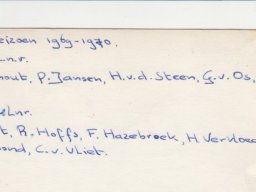 eizoen 1969-1970.
l.n.r.
hout, P. Jansen, H.v.d. Steen, G.v. Os,
elnr.
t, R. Hoffs, F. Hazebroek, H Vervloe
ond, C.v. Vliet.